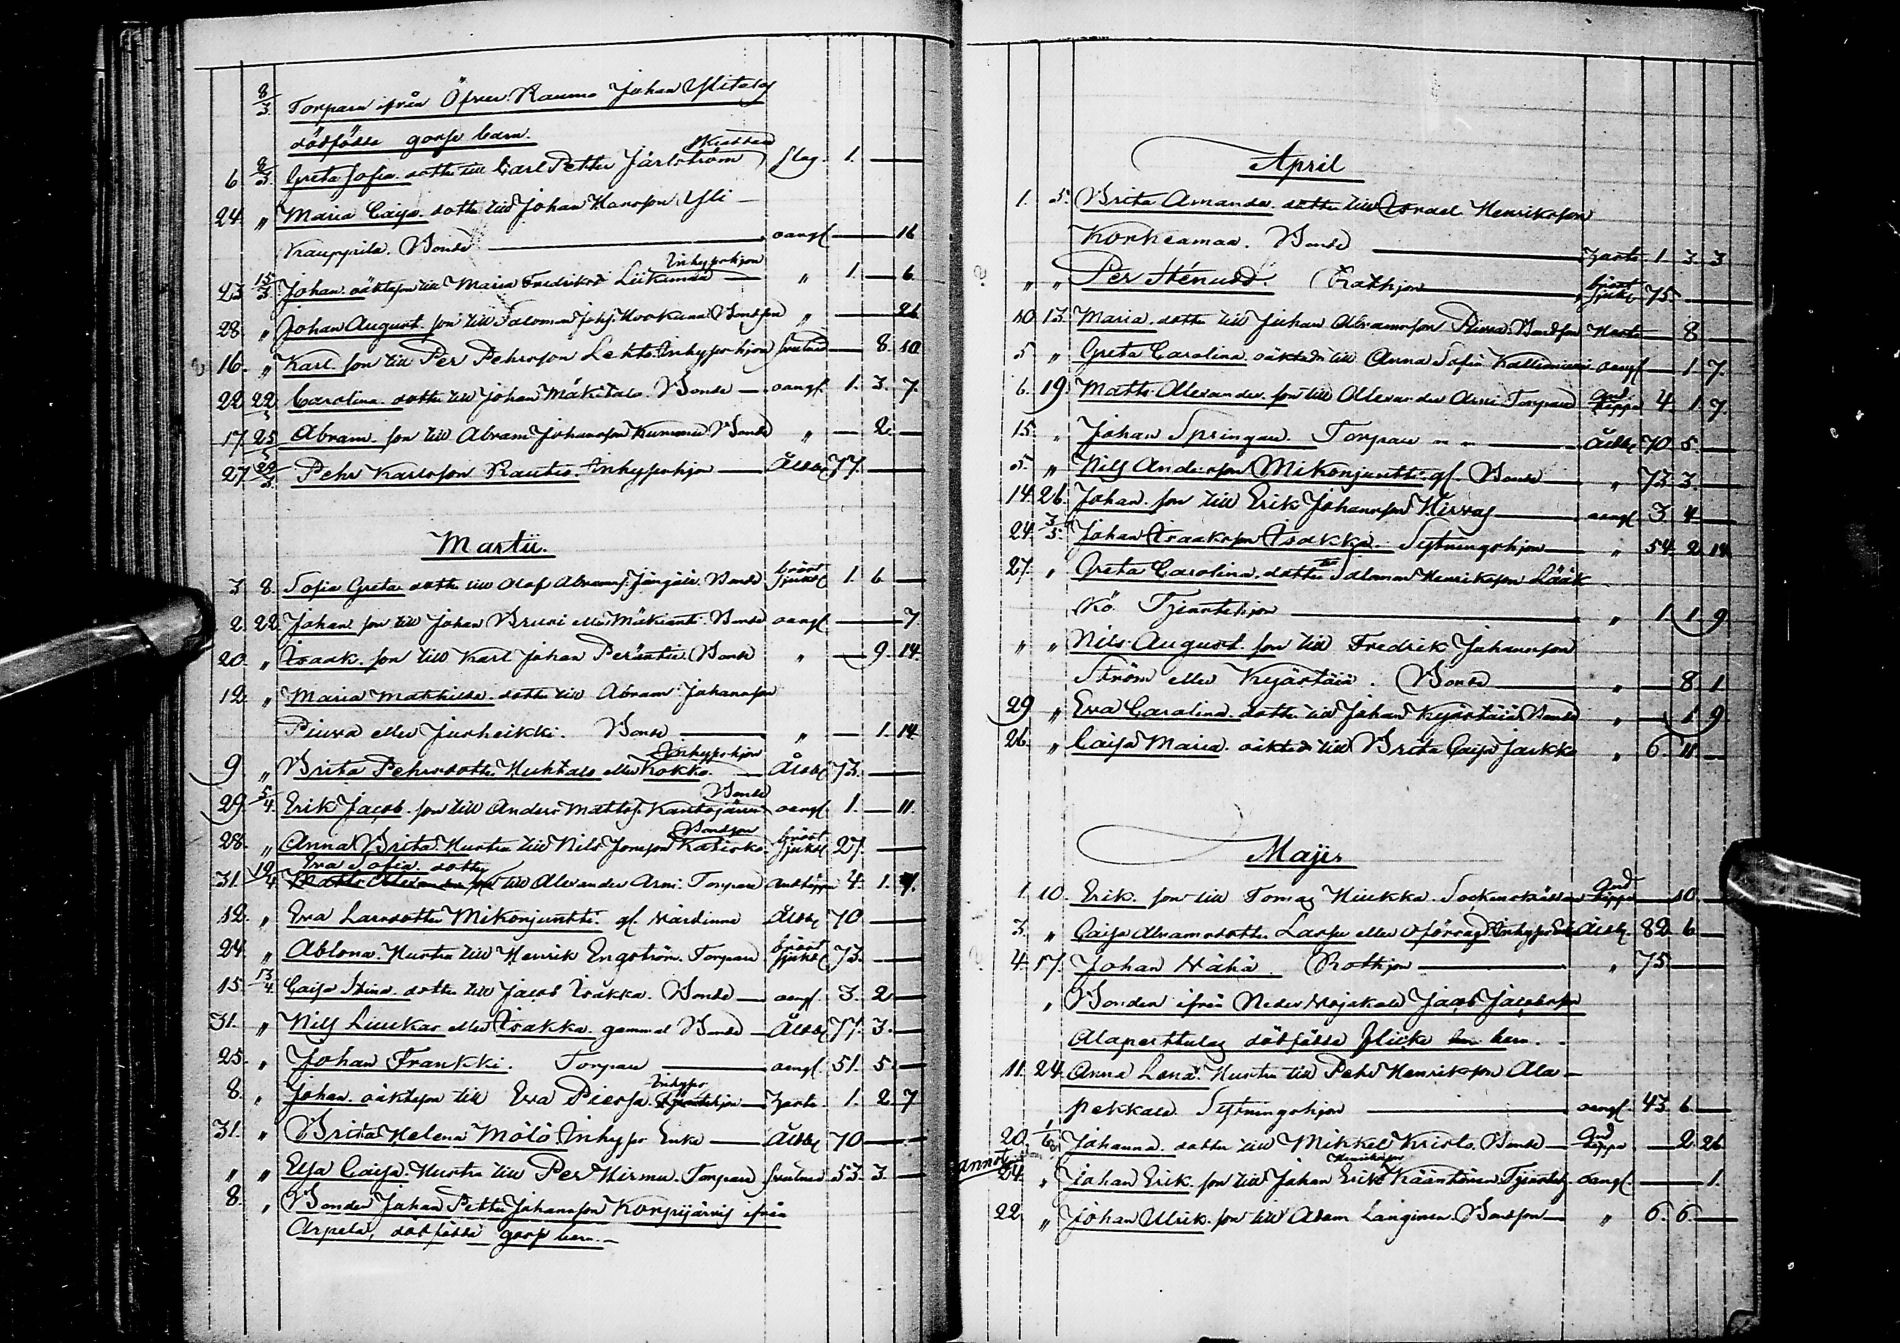 8/3 Torparn ifrån Öfver Raumo Johan Ylitalos
dödfödde gosse barn.
6 8/3 Greta Sofia dotter till Carl Petter Järlström slag. 1. —
24 " Maria Caisa dotter till Johan Hansson Yli
Krauppila. Bonde — oangf. — 16
Inhyseshjon
23 15/3 Johan oäkta son till Maria Fredriksd " 1. — 6
28 " Johan August son till Salomon Bondson " — 26
16. " Karl son till Per Pehrsson Lehto Inhyseshjon — 8 10
22 22/3 Carolina dotter till Johan Mäkitalo. Bonde — oangf. 1. 3. 7.
17. 25/3 Abram son till Abram Johansson Kummu Bonde " — 2 —
27 29/3 Pehr Karlsson Rautio Inhyseshjon — Åldd. 77. —
Martii.
3 8. Sofia Greta dotter till Olof Abramss. Bonde bröst sjukd. 1. 6 —
2. 22 Johan son till Johan Bruri eller Mäkianti Bonde oangf. — 7
20. " Isaak son till Karl Johan Peräntie Bonde " — 9. 14.
12. " Maria Mathilda dotter till Abram Johansson
Piuva eller Jurheikki. Bonde — " — 1. 14
Inhyseshjon
9 " Brita Pehrsdotter Huhtalo eller Kokko — Åldd. 73. —
Bonde
29. 5/4 Erik Jacob son till Anders Mattss. Kantojärvi oangf. 1. — 11.
Bondson
28. " Anna Brita Hustru till Nils Jonsson bröst sjukd. 27. —
Eva Sofia dotter
31. 10/4 Matts Alexander son till Alexander Arni Torpare andtäppa 4. 1. 7.
12. " Eva Larsdotter Mikonjuntti gl. Värdinna Åldd. 70 —
24. " Ablona Hustru till Henrik Engström. Torpare bröst sjukd. 73. —
15. 13/4 Caisa Stina dotter till Jacob Isakka. Bonde — oangf. 3. 2 —
31. " Nils Liukas eller Isakka gammal Bonde — Åldd. 77. 3. —
25. " Johan Frankki. Torpare — oangf. 51. 5 —
Inhyses
8. " Johan oäkta son till Eva Piersa — 1. 2 7
31. " Brita Helena Mölö Inhyses Enka — Åldd. 70 —
" " Elsa Caisa Hustru till Per Hirmu. Torpare 53. 3. —
8. " Bonden Johan Petter Johansson Korpijärvis ifrån
Arpela, dödfödde gosse barn. —
April
1. 5. Brita Amanda dotter till Israel Henriksson
Korkeamaa. Bonde — 1. 3. 3
" " Per Stenudd. Rothjon — bröst sjukd. 75. —
10 13. Maria dotter till Johan Abramsson Piuva Bondson — 8 —
5 " Greta Carolina oäkta dr till Anna Sofia Kallioniemi oangf. — 1. 7.
6. 19. Matts Alexander son till Alexander Arni Torpare And täppa 4. 1. 7.
15. " Johan Springare. Torpare " " — Åldd. 70 5. —
5. " Nils Andersson Mikonjuntti gl. Bonde — " 73. 3. —
14. 26. Johan son till Erik Johansson Hirvas — oangf. 3. 4 —
24. 3/5. Johan Isaksson Isakka Sytningshjon — " 54. 2. 14.
27. " Greta Carolina dotter till Salomon Henriksson Lääk
kö Tjenstehjon — " 1. 1. 9
" " Nils August son till Fredrik Johansson
Ström eller Kyöstäiä. Bonde — " — 8. 1
29 " Eva Carolina dotter till Johan Kyöstäiä Bonde " — 1. 9
26. " Caisa Maria oäkta dr till Brita Caisa Jarkko " 6. 11. —
Maji.
1. 10. Erik son till Tomas Hiukka And täppa — 10. —
3. " Caisa Abramsdotter Lassi eller Åldd. 82. 6 —
4. 17. Johan Hähä. Rothjon — " 75. —
" Bonden ifrån Neder Vojakala Jacob Jacobsson
Alaperttulas dödfödde flicke barn. —
11. 24. Anna Lena Hustru till Pehr Henriksson Ala —
pekkala. Sytningshjon — oangf. 43. 6. —
20. 1/6 Johanna dotter till Mikkel Kristo Bonde — And täppa — 2. 26
Henriksson
24. " Johan Erik son till Johan Erik oangf. — 1.
22. " Johan Ulrik son till Adam Langinen Bondson — " 6. 6. —